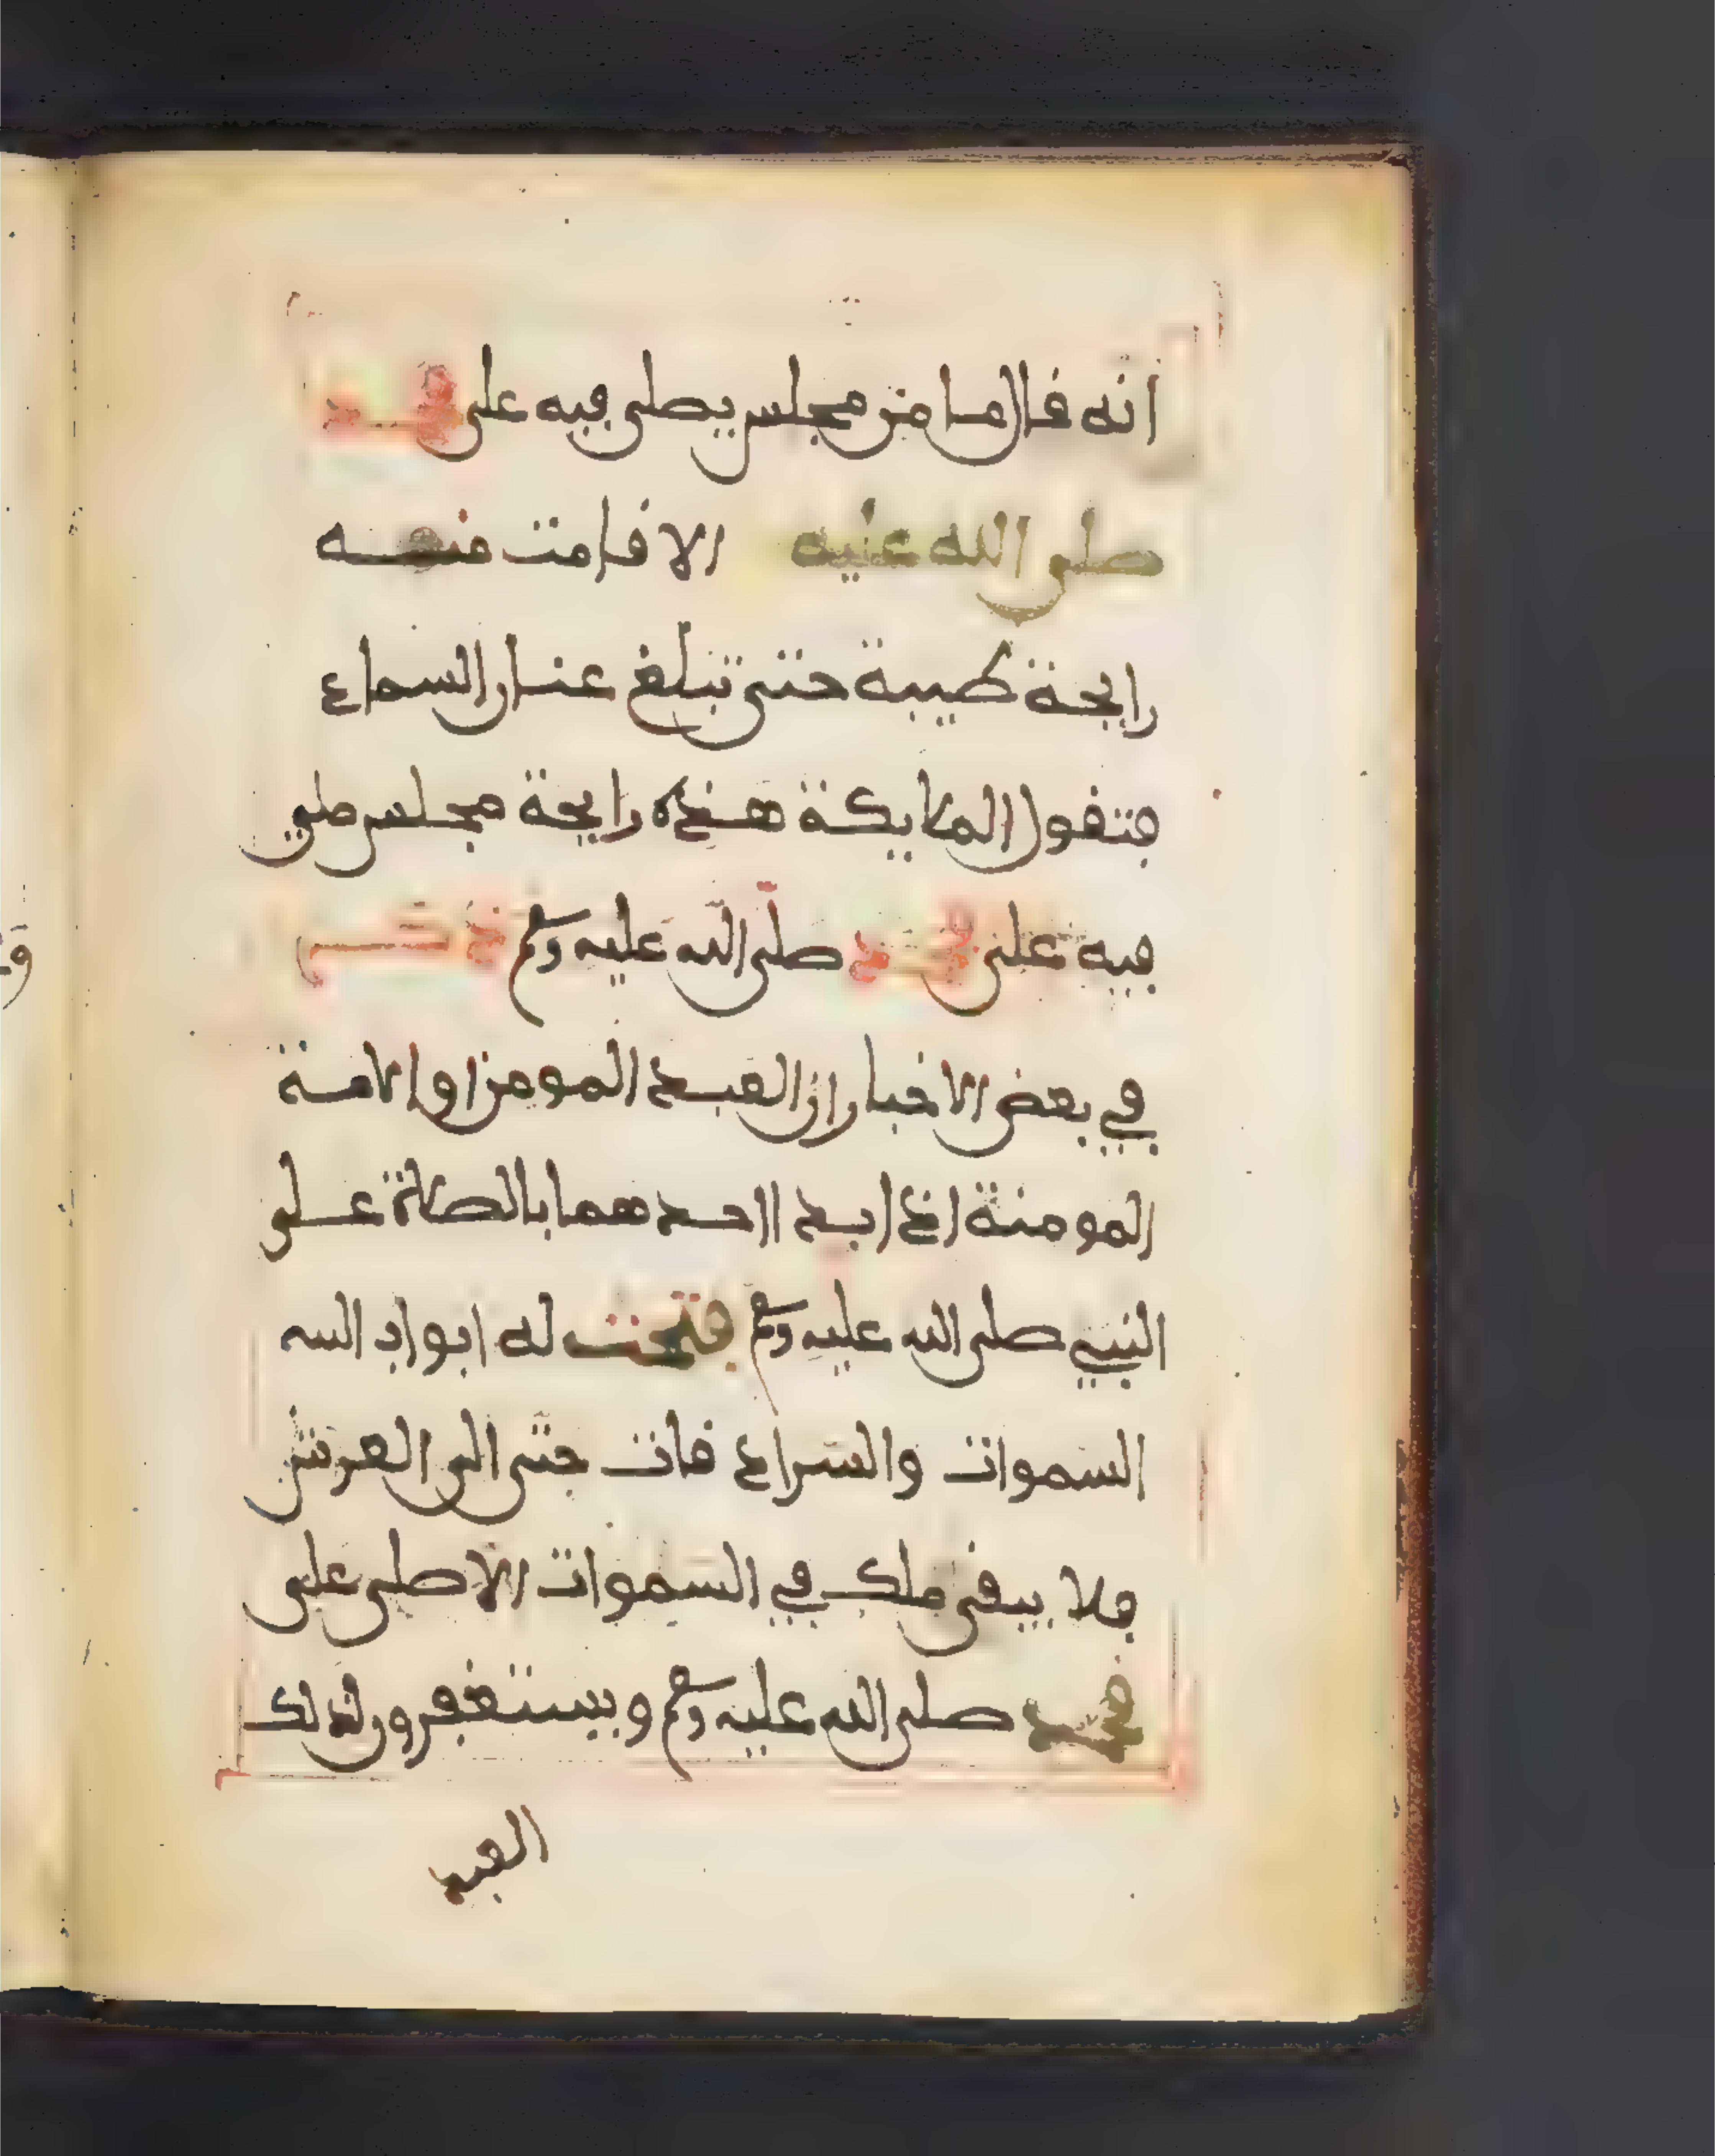 أنه قال ما من مجلس يصلى فيه على محمد
صلى الله عليه الا قامت منه
رايحة طيبة حتى تبلغ عنان السماء
فتقول الملايكة هذه رايحة مجلس صلي
فيه على محمد صلى الله عليه وسلم ذكر
في بعض الاخبار ان العبد المومن او الامة
المومنة اذا بدا احدهما بالصلاة على
النبيي صلى الله عليه وسلم فتحت له ابواب السه
السموات والسرادقات حتى الى العرش
فلا يبقى ملك في السموات الا صلى على
محمد صلى الله عليه وسلم ويستغفرون لذلك
العبد